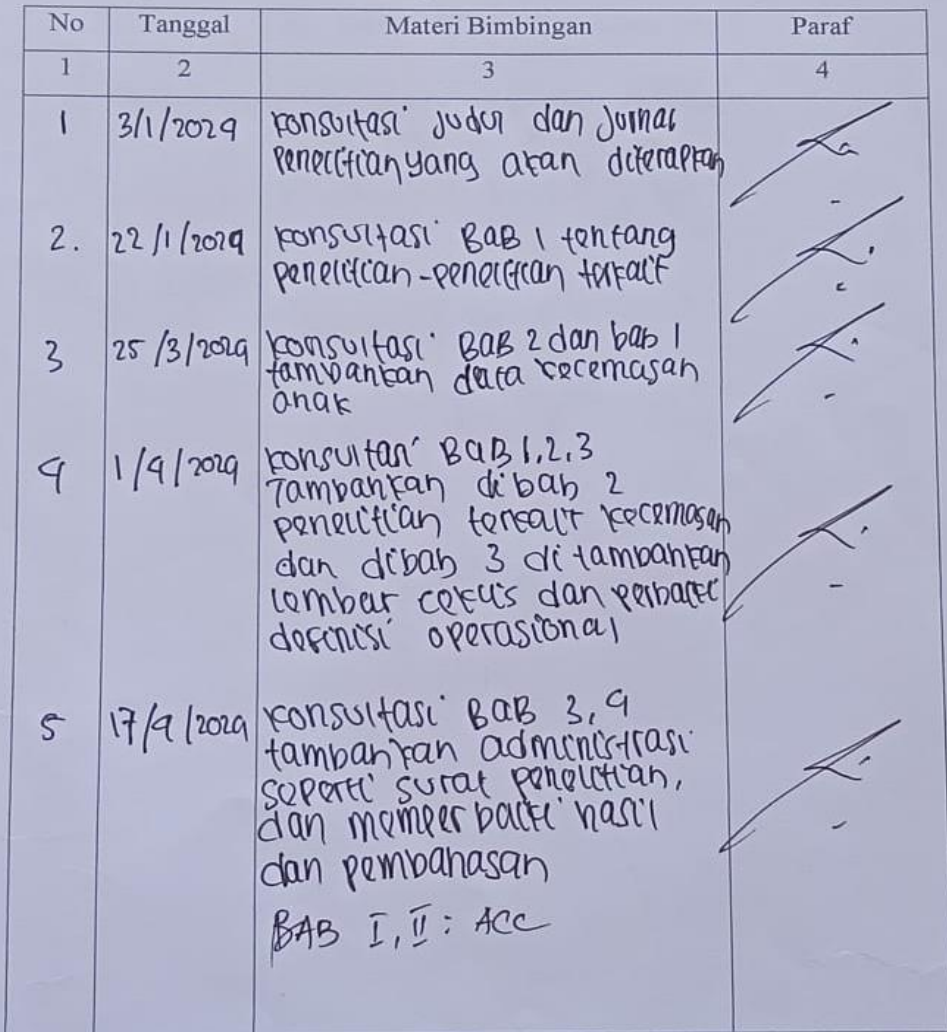 No Tanggal Materi Bimbingan Paraf
1 2 3 4
1 3/1/2024 konsultasi judul dan jurnal
penelitian yang akan diterapkan
2. 22/1/2024 konsultasi BAB 1 tentang
penelitian-penelitian terkait
3 25/3/2024 konsultasi BAB 2 dan bab 1
tambahkan data kecemasan
anak
4 1/4/2024 konsultasi BAB 1,2,3
Tambahkan dibab 2
penelitian terkait kecemasan
dan dibab 3 ditambahkan
lembar ceklis dan perbaiki
definisi operasional
5 17/4/2024 konsultasi BAB 3,4
tambahkan administrasi
seperti surat penelitian,
dan memperbaiki hasil
dan pembahasan
BAB I, II : ACC